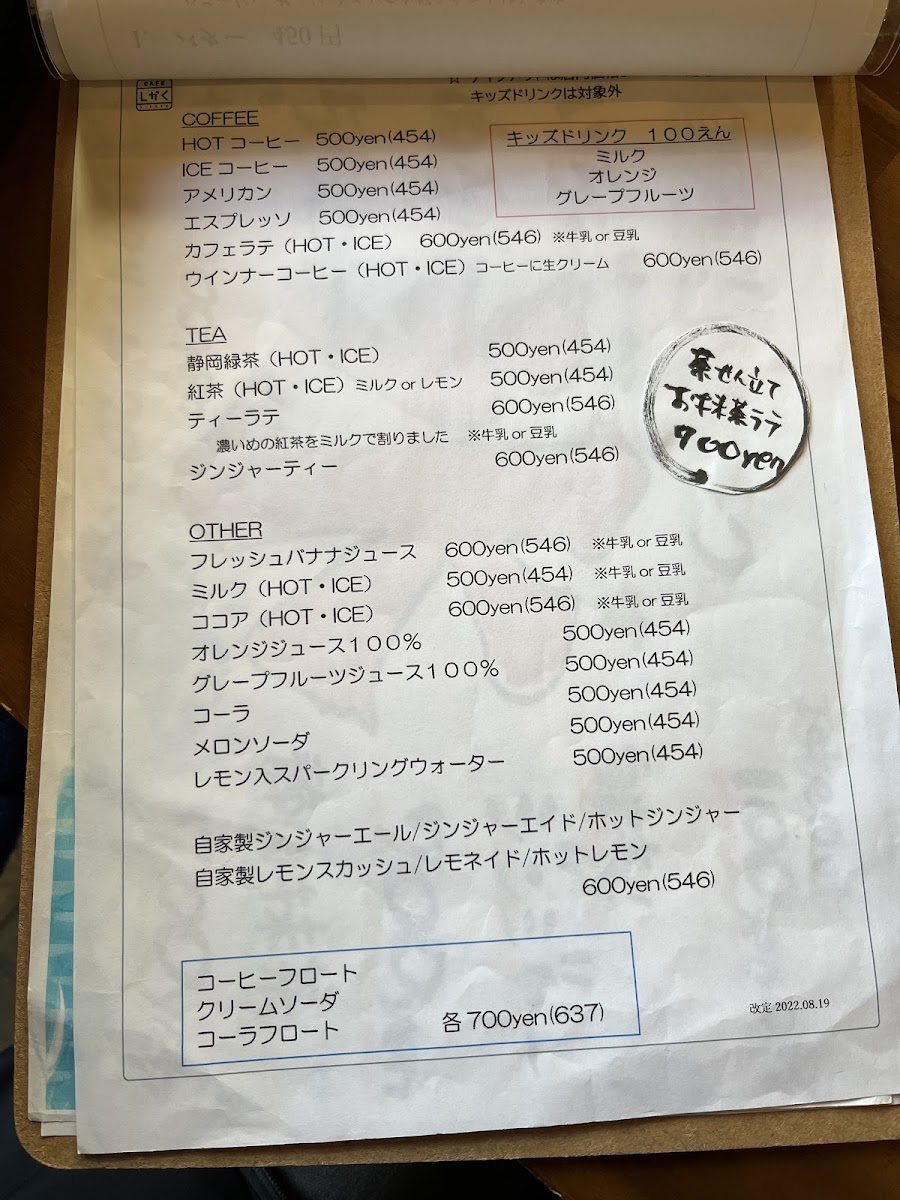 1. バター 450円
CAFE
しかく
キッズドリンクは対象外
COFFEE
HOT コーヒー 500yen(454)
ICE コーヒー 500yen(454)
アメリカン 500yen(454)
エスプレッソ 500yen(454)
カフェラテ（HOT・ICE） 600yen(546) ※牛乳 or 豆乳
ウインナーコーヒー（HOT・ICE）コーヒーに生クリーム 600yen(546)
キッズドリンク 100えん
ミルク
オレンジ
グレープフルーツ
TEA
静岡緑茶（HOT・ICE） 500yen(454)
紅茶（HOT・ICE）ミルク or レモン 500yen(454)
ティーラテ 600yen(546)
濃いめの紅茶をミルクで割りました ※牛乳 or 豆乳
ジンジャーティー 600yen(546)
茶せん立て
お抹茶ラテ
700yen
OTHER
フレッシュバナナジュース 600yen(546) ※牛乳 or 豆乳
ミルク（HOT・ICE） 500yen(454) ※牛乳 or 豆乳
ココア（HOT・ICE） 600yen(546) ※牛乳 or 豆乳
オレンジジュース１００％ 500yen(454)
グレープフルーツジュース１００％ 500yen(454)
コーラ 500yen(454)
メロンソーダ 500yen(454)
レモン入スパークリングウォーター 500yen(454)
自家製ジンジャーエール/ジンジャーエイド/ホットジンジャー
自家製レモンスカッシュ/レモネイド/ホットレモン
600yen(546)
コーヒーフロート
クリームソーダ
コーラフロート 各 700yen(637)
改定 2022.08.19